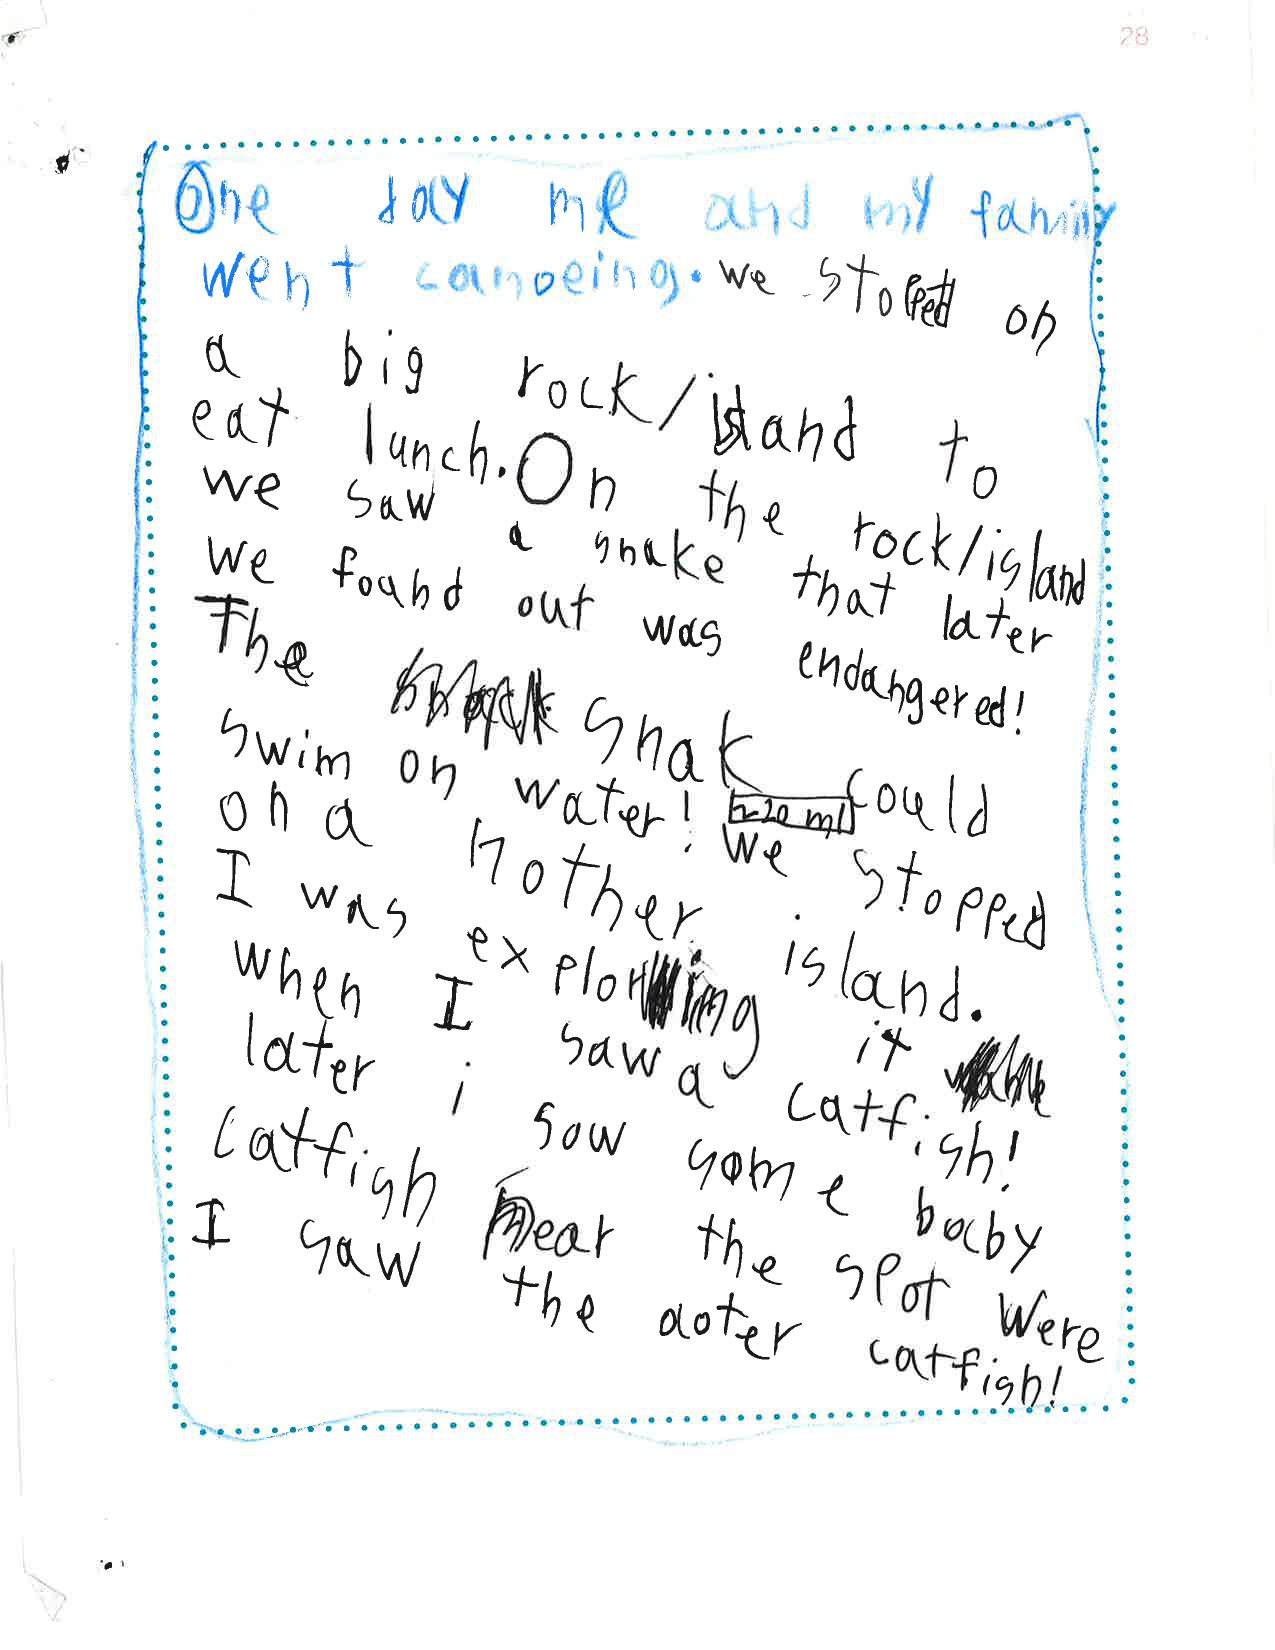 28
One day me and my family
went canoeing. we stopped on
a big rock/island to
eat lunch. On the rock/island
we saw a snake that later
we found out was endangered!
The snak could
swim on water! we stopped
on a nother island.
I was exploring it
when I saw a catfish!
later i sow some baby
catfish near the spot were
I saw the aoter catfish!